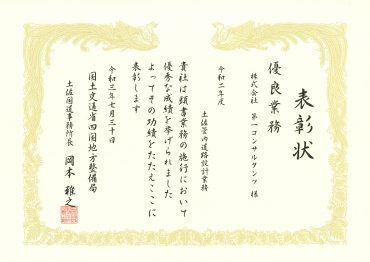 表彰状
優良業務
株式会社 第一コンサルタンツ 様
令和二年度
土佐管内道路設計業務
貴社は頭書業務の施行において
優秀な成績を挙げられました
よってその功績をたたえここに
表彰します
令和三年七月三十日
国土交通省四国地方整備局
土佐国道事務所長 岡本 雅之